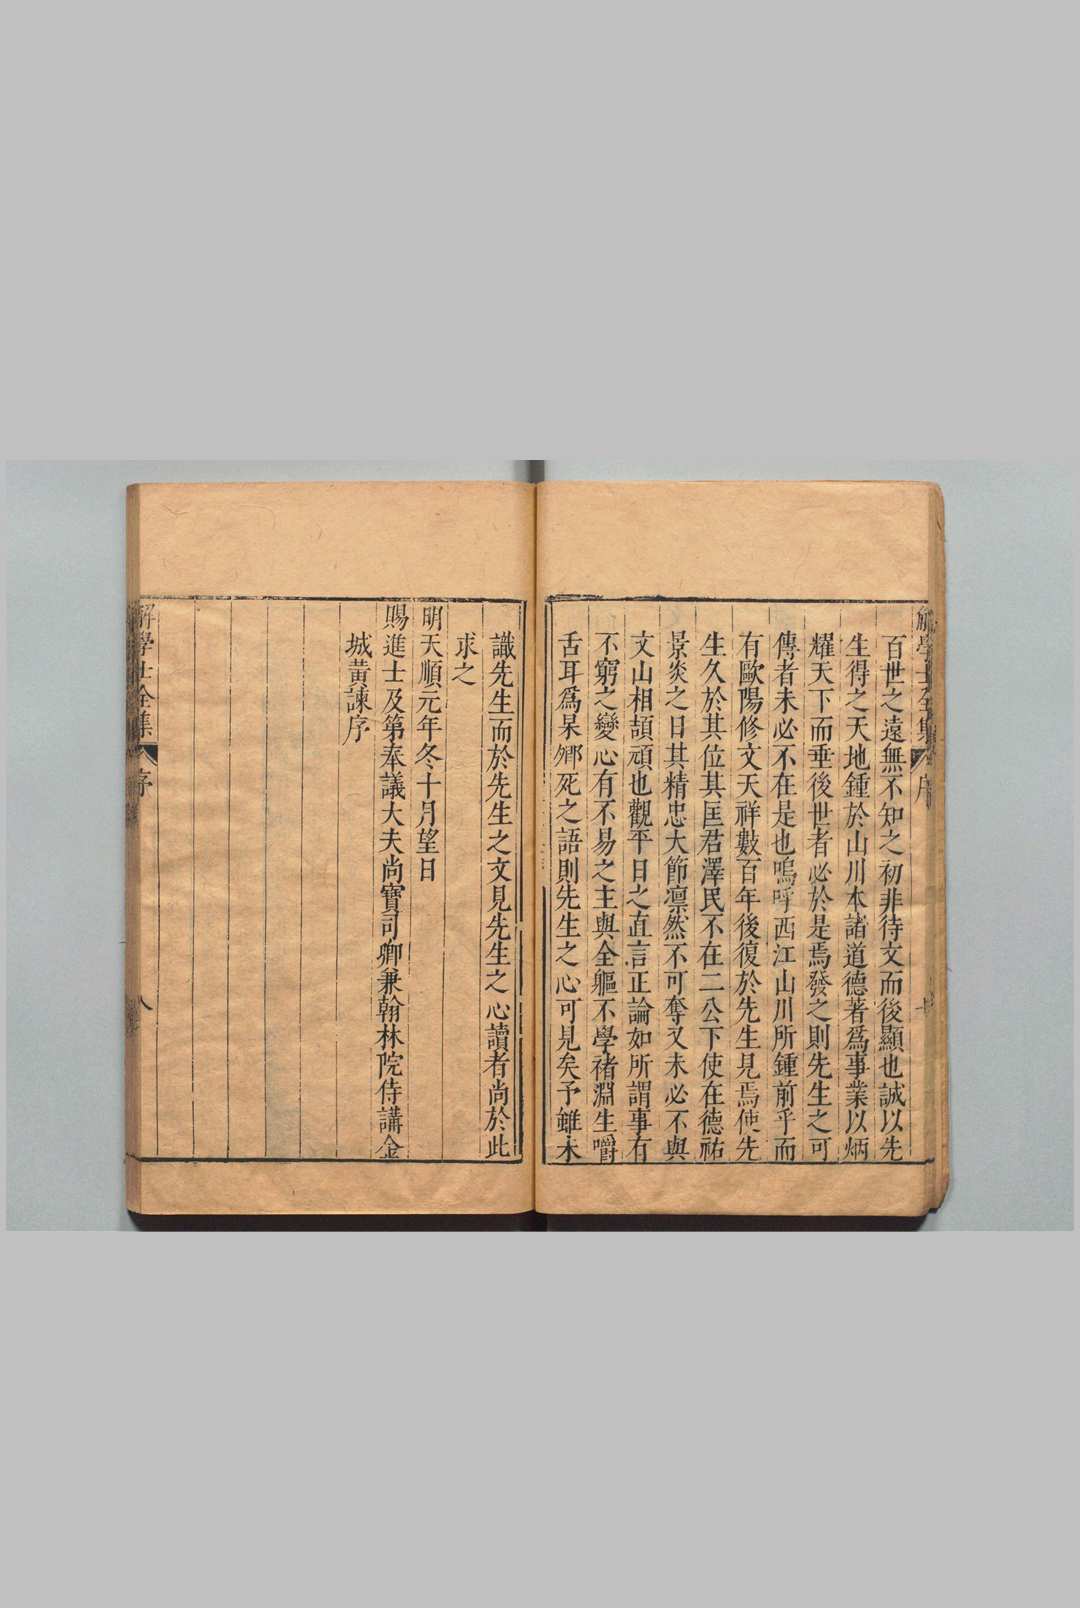 百世之遠無不知之初非待文而後顯也誠以先
生得之天地鍾於山川本諸道德著爲事業以炳
耀天下而垂後世者必於是焉發之則先生之可
傳者未必不在是也嗚呼西江山川所鍾前乎而
有歐陽修文天祥數百年後復於先生見焉使先
生久於其位其匡君澤民不在二公下使在德祐
景炎之日其精忠大節凛然不可奪又未必不與
文山相頡頏也觀平日之直言正論如所謂事有
不窮之變心有不易之主與全軀不學褚淵生嚼
舌耳爲杲卿死之語則先生之心可見矣予雖未
識先生而於先生之文見先生之心讀者尚於此
求之
明天順元年冬十月望日
賜進士及第奉議大夫尚寶司卿兼翰林院侍講金
城黃諫序
解學士全集
序
八